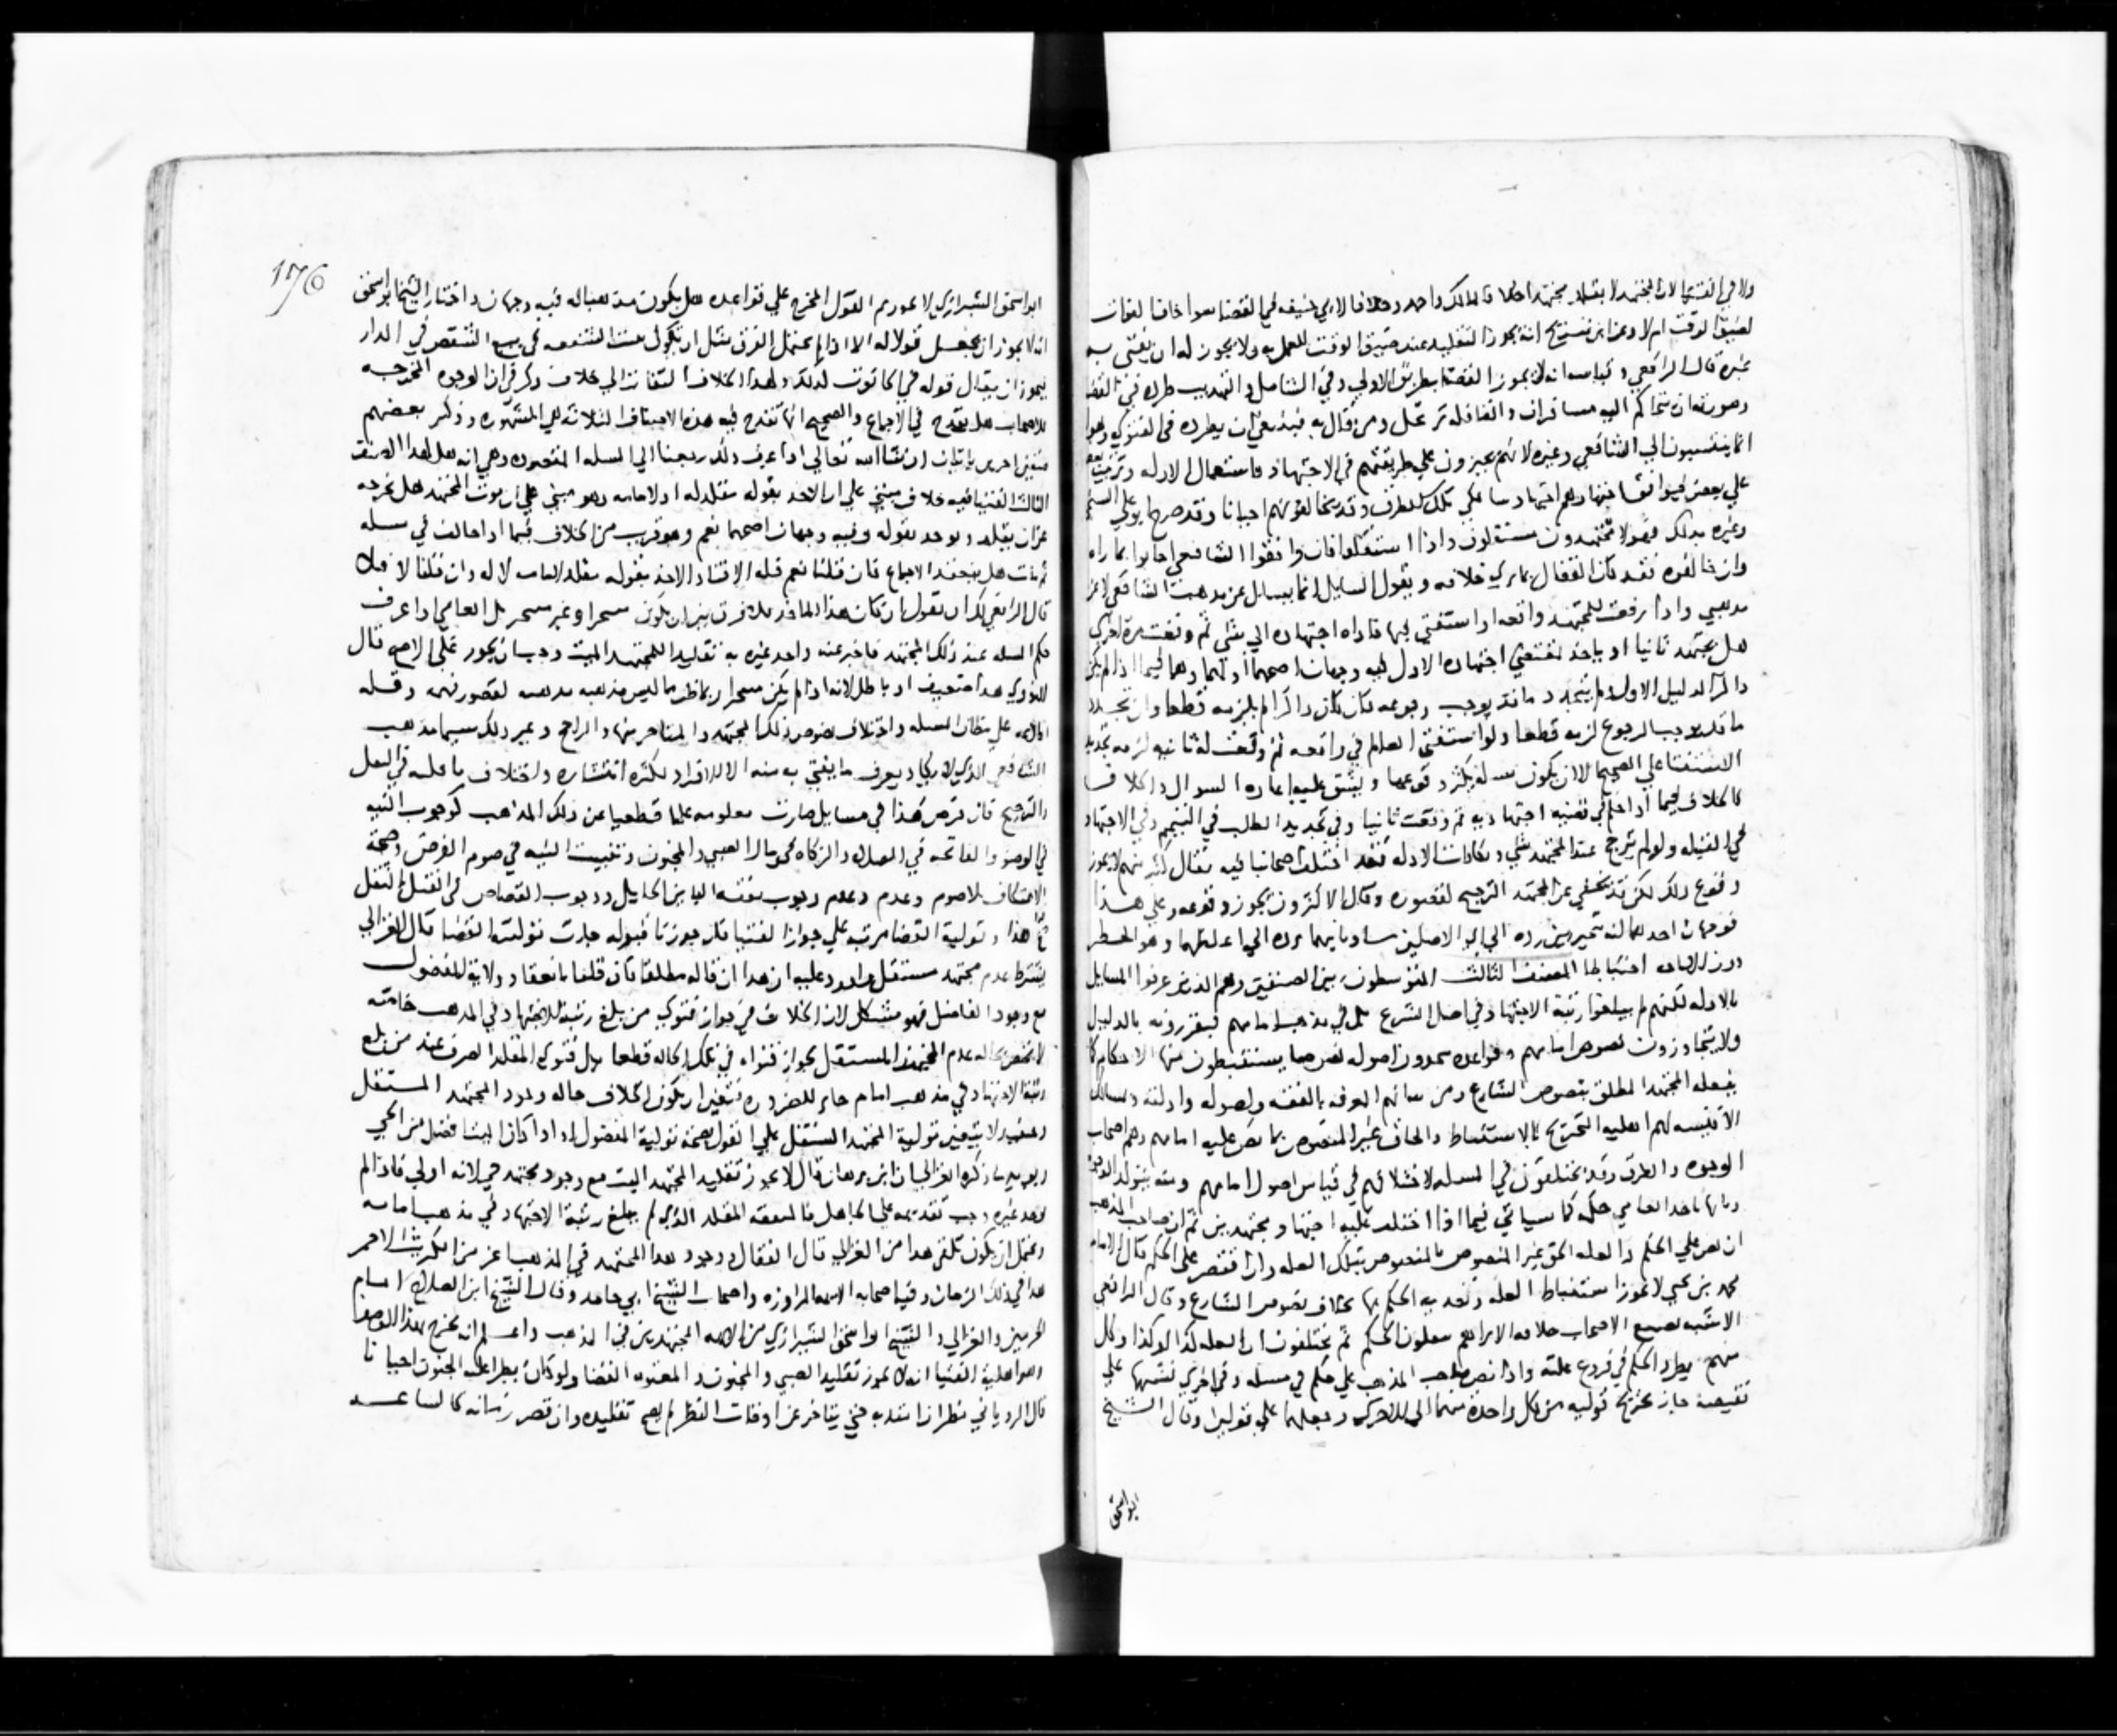 ولا في الفتيا لان المجتهد لا يقلد مجتهدا خلافا لمالك واحمد وخلافا لابي حنيفه في القضا سوا خاف الفوات
لضيق الوقت ام لا وعن ابن سريج انه يجوز التقليد عند ضيق الوقت للعمل به ولا يجوز له ان يفتي به
غيره قال الرافعي وقياسه انه لا يجوز القضا بطريق الاولي وفي الشامل والتهذيب طرده في القضا
وصورته ان يتحاكم اليه مسافران والقافله ترتحل ومن قال به فينبغي ان يطرده في الفتوي وهولا
انما ينتسبون الي الشافعي وغيره لانهم يجرون علي طريقتهم في الاجتهاد واستعمال الادله وترتيب بعضها
علي بعض ويوافق اجتهادهم اجتهاد سالكي تلك الطرق وقد يخالفونهم احيانا وقد صرح ابو علي السنجي
وغيره بذلك فهولا مجتهدون مستقلون واذا استقلوا فان وافقوا الشافعي اجابوا بما راه
وان خالفوه فقد كان القفال يري خلافه ويقول السايل انما يسال عن مذهب الشافعي لا عن
مذهبي واذا رفعت للمجتهد واقعه او استفتي بها فاداه اجتهاده الي شي ثم وقعت مرة اخري
هل يجتهد ثانيا او ياخذ بمقتضي اجتهاده الاول فيه وجهان اصحهما اولهما وهما فيما اذا لم يكن
ذاكرا لدليل الاول ولم يتجدد ما قد يوجب رجوعه فان كان ذاكرا لم يلزمه قطعا وان تجدد
ما قد يوجب الرجوع لزمه قطعا ولو استفتي العامي في واقعه ثم وقعت له ثانيه لزمه تجديد
الاستفتا علي الصحيح الا ان يكون مسله يكثر وقوعها ويشق عليه اعاده السوال والخلاف
كالخلاف فيما اذا حكم في قضيه اجتهاديه ثم وقعت ثانيا وفي تجديد الطلب في التيمم وفي الاجتهاد
في القبله ولو لم يترجح عند المجتهد شي وتكافات الادله فقد اختلف اصحابنا فيه فقال كثير منهم لا يجوز
وقوع ذلك لكن قد يخفي عن المجتهد الترجيح لقصوره وقال الاكثرون يجوز وقوعه وعلي هذا
فوجهان احدهما انه يتخير بين رده الي اي الاصلين شا وثانيهما يرده الي اغلظهما وهو الحظر
دون الاباحه احتياطا الصنف الثالث المتوسطون بين الصنفين وهم الذين عرفوا المسايل
بالادله لكنهم لم يبلغوا رتبة الاجتهاد في اصل الشرع بل في مذهب امامهم فيقررونه بالدليل
ولا يتجاوزون نصوص امامهم وقواعده يتخذون اصوله نصوصا يستنبطون منها الاحكام كما
يفعله المجتهد المطلق بنصوص الشارع ومن شانهم المعرفه بالفقه واصوله وادلته ومسالك
الاقيسه لهم اهليه التخريج والاستنباط والحاق غير المنصوص بما نص عليه امامهم وهم اصحاب
الوجوه والطرق وقد يختلفون في المسله لاختلافهم في قياس اصول امامهم ومنه يتولد الوجوه
وبايها ياخذ العامي حكمه كما سياتي فيما اذا اختلف عليه اجتهاد مجتهدين ثم ان صاحب المذهب
ان نص علي الحكم والعله الحق غير المنصوص بالمنصوص بتلك العله وان اقتصر علي الحكم قال الامام
محمد بن يحيي لا يجوز استنباط العله وتعديه الحكم بها بخلاف نصوص الشارع وقال الرافعي
الاشبه بصنيع الاصحاب خلافه الا تراهم يعللون الحكم ثم يختلفون ان العله كذا او كذا وكل
منهم يطرد الحكم في فروع علته واذا نص صاحب المذهب علي حكم في مسله وفي اخري تشبهها علي
نقيضه جاز تخريج قوليه من كل واحدة منهما الي الاخري وجعلهما علي قولين وقال الشيخ
ابو اسحق
176
ابو اسحق الشيرازي لا يجوز ثم القول المخرج علي قواعده هل يكون مذهبا له فيه وجهان واختار الشيخ ابو اسحق
انه لا يجوز ان يجعل قولا له الا اذا لم يحتمل الفرق مثل ان يكول تثبت الشفعه في بيع الشقص في الدار
فيجوز ان يقال قوله في الحانوت كذلك ولهذا الخلاف التفات الي خلاف ذكر في ان الوجوه المخرجه
للاصحاب هل تقدح في الاجماع والصحيح انها تقدح فيه هذه الاصناف الثلاثه هي المشهوره وذكر بعضهم
صنفين اخرين ياتيان ان شا الله تعالي اذا عرف ذلك رجعنا الي المسله المقصوده وهي انه هل لهذا الصنف
الثالث الفتيا فيه خلاف مبني علي ان الاخذ بقوله مقلد له او لامامه وهو مبني علي ان موت المجتهد هل يخرجه
عن ان يقلد ويوخذ بقوله وفيه وجهان اصحهما نعم وهو قريب من الخلاف فيما اذا خالف في مسله
ثم مات هل ينعقد الاجماع فان قلنا نعم فله الافتا والاخذ بقوله مقلد لامامه لا له وان قلنا لا فلا
قال الرافعي لك ان تقول ان كان هذا الماخذ فلا فرق بين ان يكون متبحرا وغير متبحر بل العامي اذا عرف
حكم المسله عند ذلك المجتهد فاخبر عنه واخذ غيره به تقليدا للمجتهد الميت وجب ان يجوز علي الاصح قال
النووي هذا ضعيف او باطل لانه اذا لم يكن متبحرا ربما ظن ما ليس مذهبه مذهبه لقصور فهمه وقله
اطلاعه علي مظان المسله واختلاف نصوص ذلك المجتهد والمتاخر منها والراجح وغير ذلك سيما مذهب
الشافعي الذي لا يكاد يعرف ما يفتي به منه الا الافراد لكثره انتشاره واختلاف ناقليه في النقل
والترجيح فان فرض هذا في مسايل صارت معلومه علما قطعيا عن ذلك المذهب كوجوب النيه
في الوضو والفاتحه في الصلاه والزكاه في مال الصبي والمجنون وتبييت النيه في صوم الفرض وصحة
الاعتكاف بلا صوم وعدم وجوب نفقه الباين الحايل ووجوب القصاص في القتل بالمثقل
صح هذا وتولية القضا مرتبه علي جواز الفتيا فان جوزنا قبوله جازت توليته القضا قال الغزالي
بشرط عدم مجتهد مستقل واورد عليه ان هذا ان قاله مطلقا فان قلنا بانعقاد ولاية المفضول
مع وجود الفاضل فهو مشكل لان الخلاف في جواز فتوي من بلغ رتبة الاجتهاد في المذهب خاصه
لا تختص بحاله عدم المجتهد المستقل بجواز فتواه في تلك الحاله قطعا بل فتوي المقلد الصرف عند من بلغ
رتبة الاجتهاد في مذهب امام جايز للضروره فتعين ان يكون الخلاف حاله وجود المجتهد المستقل
وحينئذ لا يتعين تولية المجتهد المستقل علي القول بصحة تولية المفضول او اذا كان الميت افضل من الحي
ويويد ما ذكره الغزالي ان ابن برهان قال لا يجوز تقليد المجتهد الميت مع وجود مجتهد حي لانه اولي فاذا لم
نجد غيره وجب تقديمه علي الجاهل فالمتفقه المقلد الذي لم يبلغ رتبة الاجتهاد في مذهب امامه
ويحتمل ان يكون تلقي هذا من الغزالي قال القفال ووجود هذا المجتهد في المذهب اعز من الكبريت الاحمر
هذا في ذلك الزمان وفيه اصحابه الائمه المراوزه واصحاب الشيخ ابي حامد وقال الشيخ ابن الصلاح امام
الحرمين والغزالي والشيخ ابو اسحق الشيرازي من الائمه المجتهدين في المذهب واعلم انه يخرج بهذا الوصف
وهو اهلية الفتيا انه لا يجوز تقليد الصبي والمجنون والمعتوه القضا ولو كان يطرا عليه الجنون احيانا
قال الروياني نظر اذا امتد به حتي يتاخر عن اوقات النظر لم يصح تقليده وان قصر زمانه كالساعه